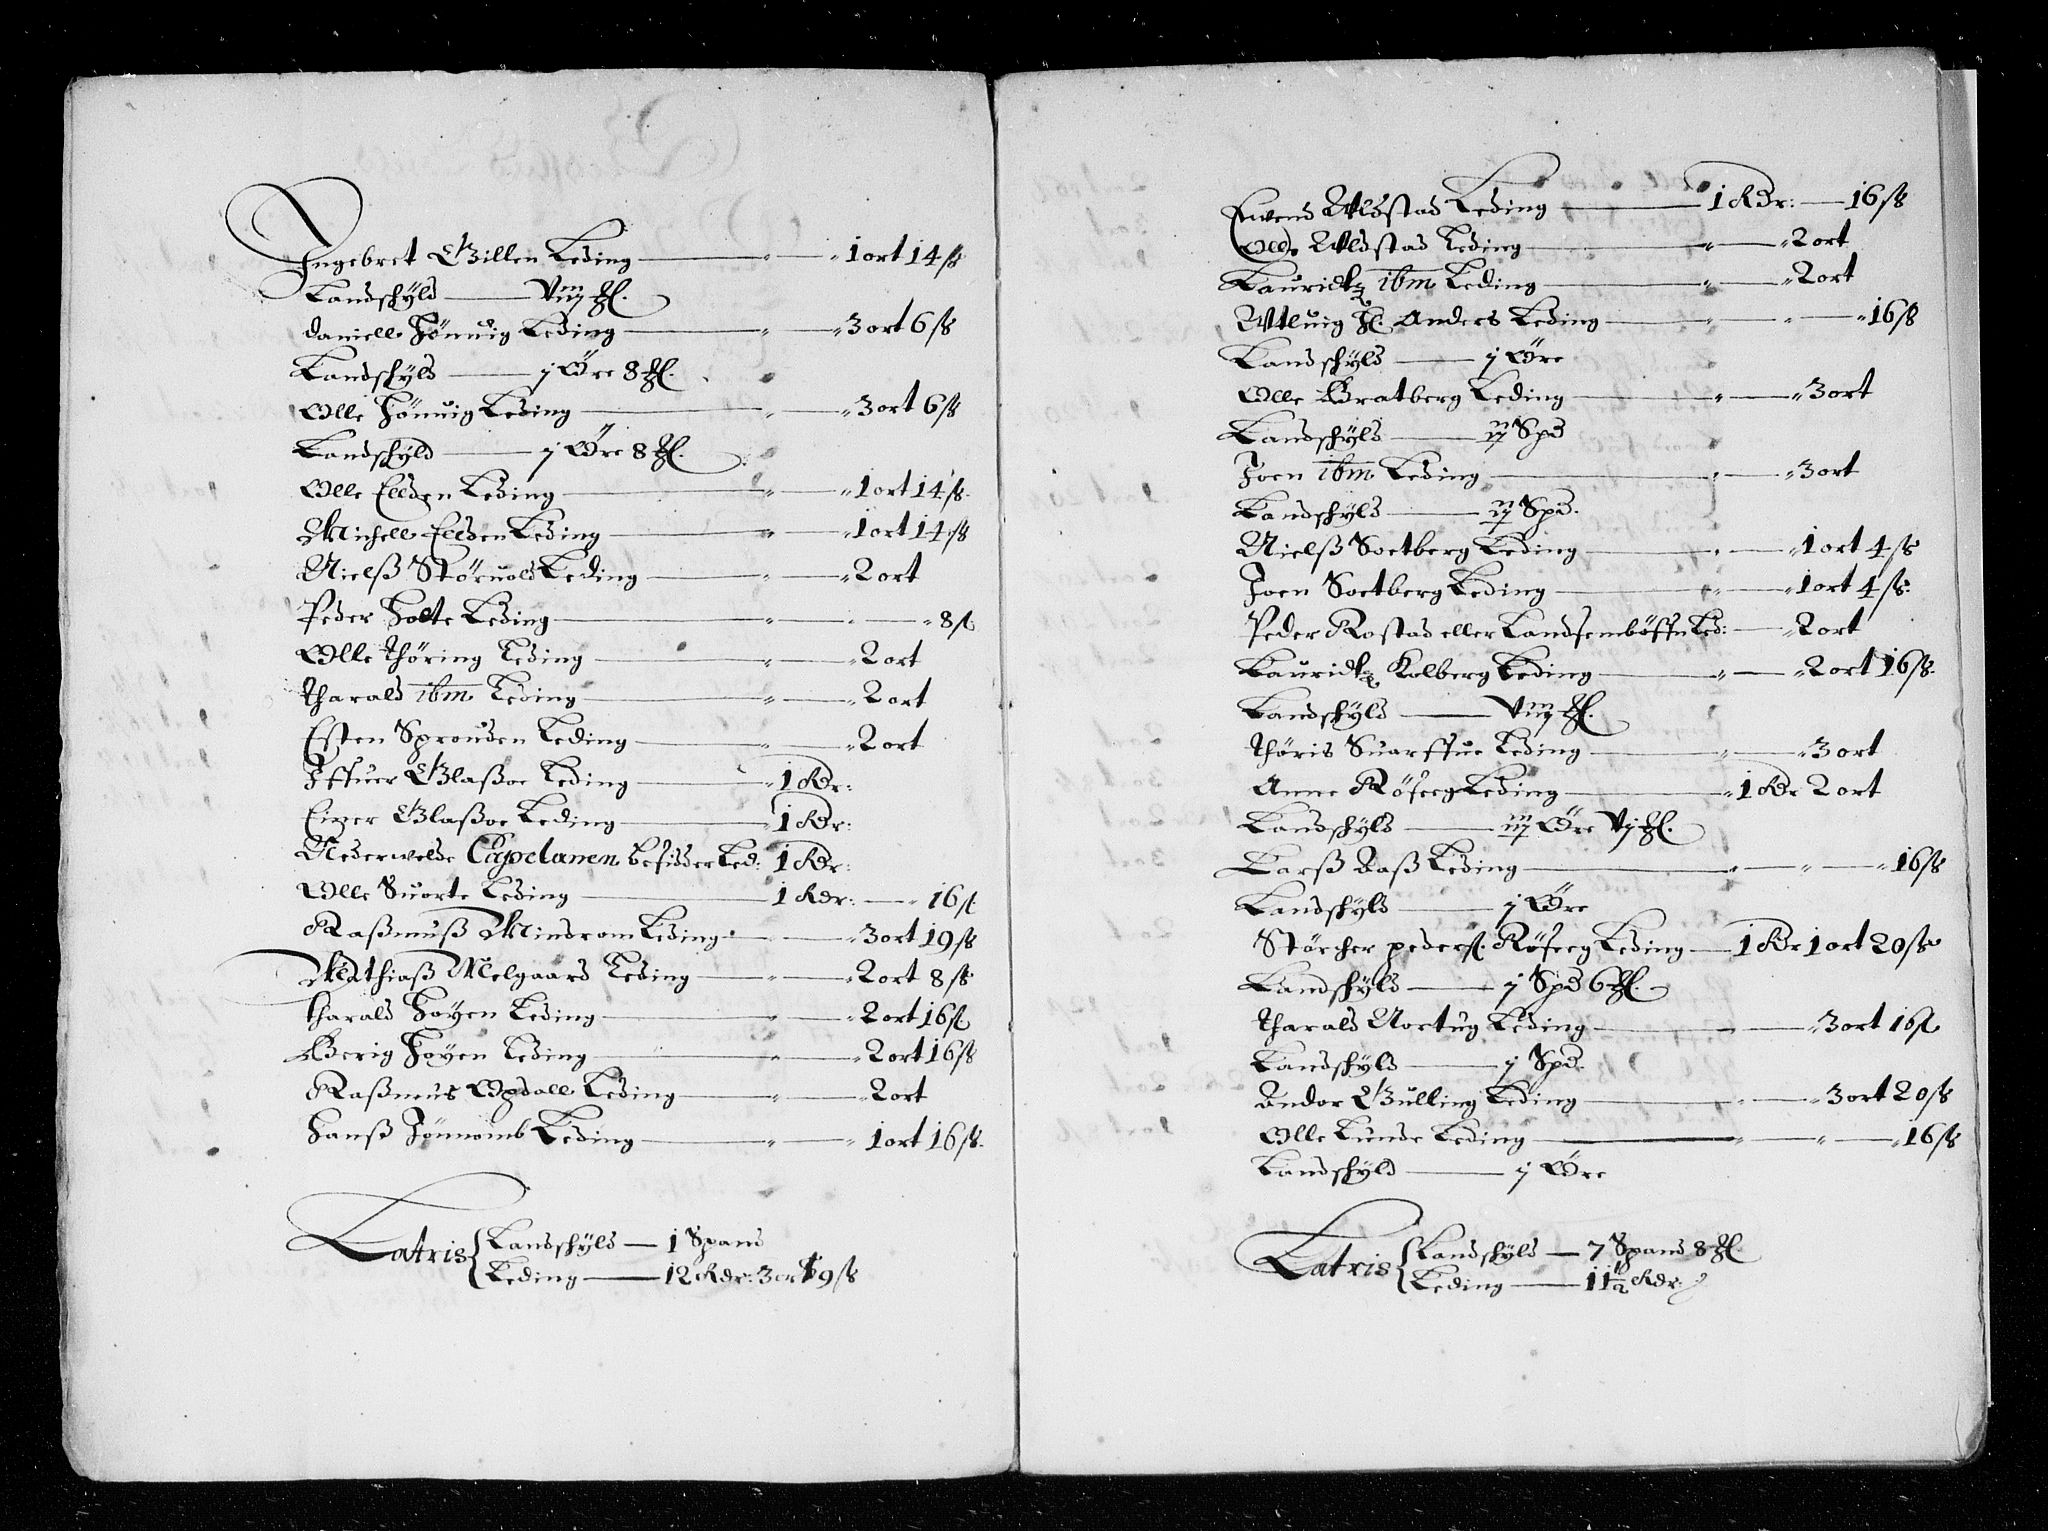 Ingebret Gillen Leding — „ — „ 1 ort 14 ß
Landschyld — Viij ℔.
Daniell Hönuig Leding — „ — „ 3 ort 6 ß
Landschyld — j Øre 8 ℔.
Olle Hönuig Leding — „ — „ 3 ort 6 ß
Landschyld — j Öre 8 ℔.
Olle Elden Leding — „ — „ 1 ort 14 ß.
Michell Elden Leding — „ — „ 1 ort 14 ß
Nielß Störuold Leding — „ — „ 2 ort
Peder Holte Leding — „ — „ 8 ß
Olle Thöring Leding — „ — „ 2 ort
Tharald ibm Leding — „ — „ 2 ort
Esten Sprouden Leding — „ — „ 2 ort
Iffuer Glaßoe Leding — „ 1 Rdr:
Einer Glaßoe Leding — „ 1 Rdr:
Nederuelde Capelanen besidder Led: 1 Rdr:
Olle Suorte Leding — 1 Rdr: — „ 16 ß
Raßmuß Mindrom Leding — „ 3 ort 19 ß
Mathiaß Melgaard Leding — „ — „ 2 ort 8 ß
Tharald Høyen Leding — „ — „ 2 ort 16 ß
Berig Høyen Leding — „ — „ 2 ort 16 ß
Raßmus Opdall Leding — „ — „ 2 ort
Hanß Jönnomb Leding — „ — „ 1 ort 16 ß.
Latris { Landschyld — 1 Spand
Leding — 12 Rdr: 3 ort 9 ß
Euend Aldstad Leding — 1 Rdr: — 16 ß
Olle Aldstad Leding — „ — „ 2 ort
Lauridtz ibm Leding — „ — „ 2 ort
Vtluig Hr. Anders Leding — „ — „ 16 ß
Landschyld — j Øre
Olle Bratberg Leding — „ — „ 3 ort
Landschyld — ij Spd
Joen ibm Leding — „ — „ 3 ort
Landschyld — ij Spd.
Nielß Soetberg Leding — „ — „ 1 ort 4 ß
Joen Soetberg Leding — „ — „ 1 ort 4 ß.
Peder Rostad eller Landsemböffn Led: — „ 2 ort
Lauridtz Kolberg Leding — „ — „ 2 ort 16 ß.
Landschyld — Viij ℔.
Thøris Suarffue Leding — „ — „ 3 ort
Anne Röseeg Leding — „ 1 Rdr 2 ort
Landschyld — iij Øre Vj ℔.
Larß Daß Leding — „ — „ 16 ß
Landschyld — j Øre
Störcher peders. Röseeg Leding — 1 Rdr 1 ort 20 ß
Landschyld — j Spd 6 ℔.
Tharald Nortug Leding — „ — „ 3 ort 16 ß
Landschyld — j Spd.
Andor Gulling Leding — „ — „ 3 ort 20 ß
Olle Lunde Leding — „ — „ 16 ß
Landschyld — j Øre
Latris { Landschyld — 7 Spand 8 ℔.
Leding — 11½ Rdr: